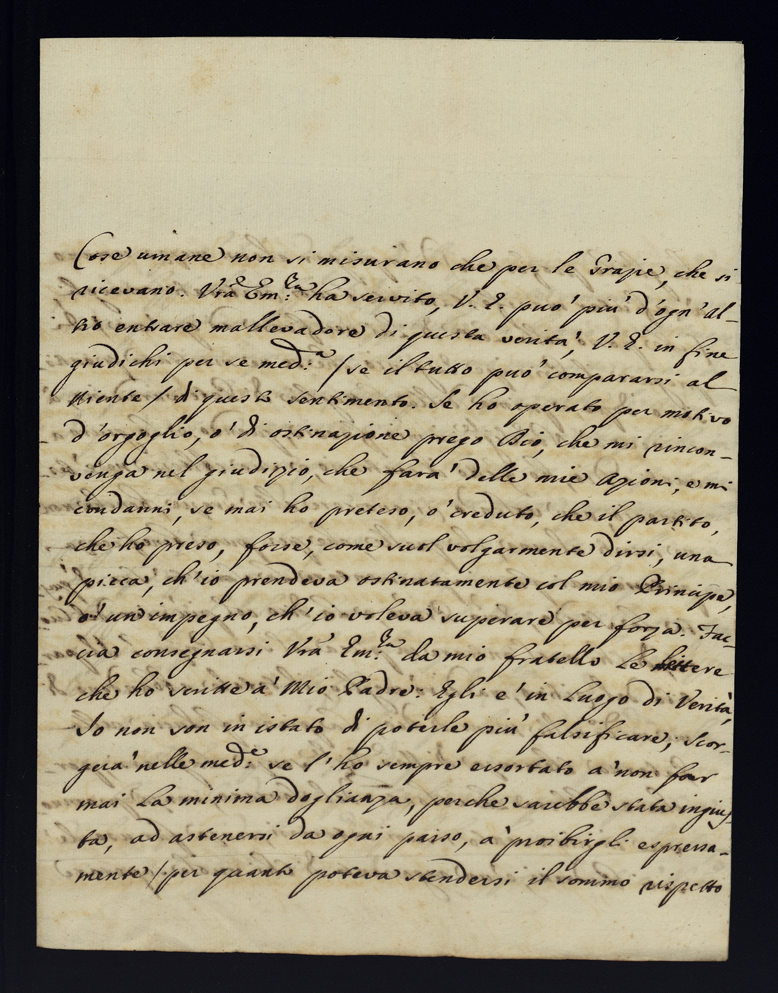 Cose umane non si misurano che per le Grazie, che si
ricevano. Vrã Em:za ha servito, V. E. può più d'ogn'al-
tro entrare mallevadore di questa verità, V. E. in fine
giudichi per se med:a /se il tutto può compararsi al
Niente/ di questo sentimento. Se ho operato per motivo
d'orgoglio, o' di ostinazione prego Dio, che mi rincon-
venga nel giudizio, che farà delle mie Azioni, e mi
condanni, se mai ho preteso, o' creduto, che il partito,
che ho preso, fosse, come suol volgarmente dirsi, una
picca, ch'io prendeva ostinatamente col mio Principe,
o' un impegno, ch'io voleva superare per forza. Fac-
cia consegnarsi Vrã Em:za da mio fratello Le lettere
che ho scritte a' Mio Padre: Egli e' in Luogo di Verità,
Io non son in istato di poterle più falsificare; Scor-
gerà nelle med:e se l'ho sempre essortato a' non far
mai La minima doglianza, perche sarebbe stata ingius-
ta, ad astenersi da ogni passo, a' proibirgli espressa-
mente /per quanto poteva stendersi il sommo rispetto